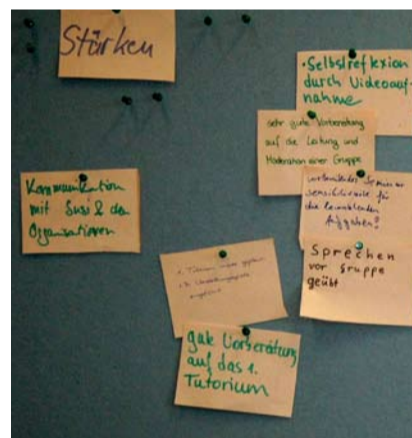 Stärken
• Selbstreflexion
durch Videoauf-
nahme
sehr gute Vorbereitung
auf die Leitung und
Moderation einer Gruppe
Kommunikation
mit Susi & den
Organisatoren
Seminar
für
die
Aufgaben!
Sprechen
vor Gruppe
geübt
1. Tutorium
gute Vorbereitung
auf das 1.
Tutorium